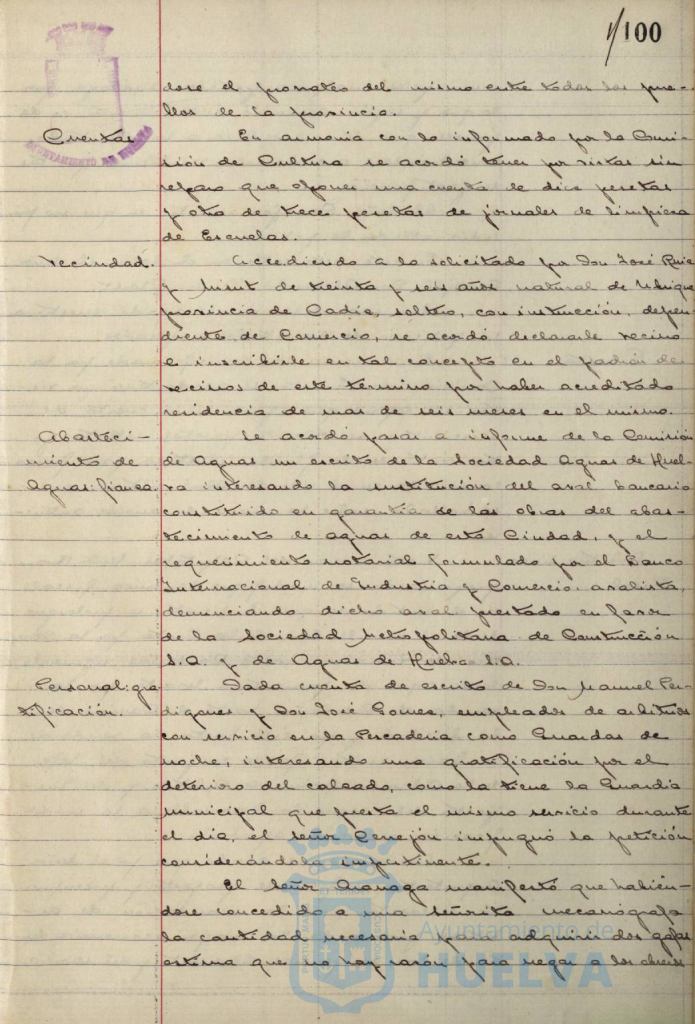 1/100
dose el prorrateo del mismo entre todos los pue-
blos de la provincia.
Cuentas
AYUNTAMIENTO DE HUELVA
En armonia con lo informado por la Comi-
sión de Cultura se acordó tener por vistas sin
reparo que oponer una cuenta de diez pesetas
y otra de trece pesetas de jornales de limpieza
de Escuelas.
Vecindad.
Accediendo a lo solicitado por Don José Ruiz
y de treinta y seis años natural de Ubrique
provincia de Cadiz, soltero, con instrucción, depen-
diente de Comercio, se acordó declararle vecino
e inscribirle en tal concepto en el padrón de
vecinos de este término por haber acreditado
residencia de mas de seis meses en el mismo.
Abasteci-
miento de
Aguas: fianza.
Se acordó pasar a informe de la Comisión
de Aguas un escrito de la Sociedad Aguas de Huel-
va interesando la sustitución del aval bancario
constituido en garantia de las obras del abas-
tecimiento de aguas de esta Ciudad, y el
requerimiento notarial formulado por el Banco
Internacional de Industria y Comercio, avalista,
denunciando dicho aval prestado en favor
de la Sociedad Metropolitana de Construcción
S.A. y de Aguas de Huelva S.A.
Personal: gra-
tificación.
Dada cuenta de escrito de Don Manuel Per-
digones y Don José Gomez, empleados de arbitrios
con servicio en la Pescaderia como Guardas de
noche, interesando una gratificación por el
deterioro del calzado, como la tiene la Guardia
Municipal que presta el mismo servicio durante
el dia, el señor Cerrejón impugnó la petición
considerándola impertinente.
El señor manifestó que habién-
dose concedido a una señorita mecanógrafa
la cantidad necesaria para adquirir dos gafas
estima que no hay razón para negar a los obreros
Ayuntamiento de
HUELVA